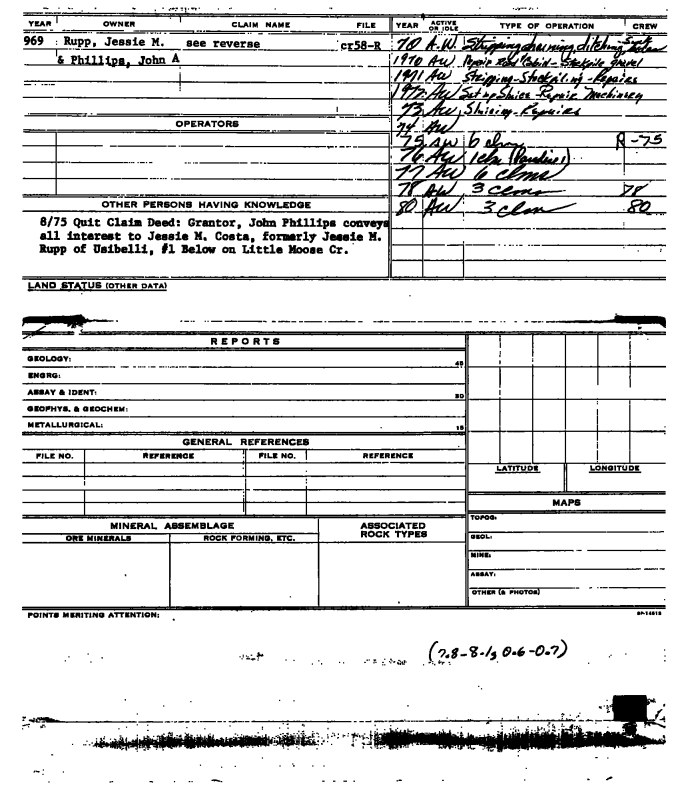 YEAR OWNER CLAIM NAME FILE YEAR ACTIVE OR IDLE TYPE OF OPERATION CREW
969 Rupp, Jessie M. see reverse cr58-R 70 A.W. Stripping draining ditching
& Phillips, John A 1970 AW Repair road Cabin - Stockpile gravel
1971 AW Stripping-Stockpiling-Repairs
1972 AW Set up Sluice Repair Machinery
73 AW Sluicing-Repairs
OPERATORS
74 AW
75 AW 6 clms R-75
76 AW 1 clm (Pauline 1)
77 AW 6 clms
78 AW 3 clms 78
OTHER PERSONS HAVING KNOWLEDGE
80 AW 3 clm 80
8/75 Quit Claim Deed: Grantor, John Phillips conveys
all interest to Jessie M. Costa, formerly Jessie M.
Rupp of Usibelli, #1 Below on Little Moose Cr.
LAND STATUS (OTHER DATA)
REPORTS
GEOLOGY: 45
ENGRG:
ASSAY & IDENT: 30
GEOPHYS. & GEOCHEM:
METALLURGICAL: 15
GENERAL REFERENCES
FILE NO. REFERENCE FILE NO. REFERENCE
LATITUDE LONGITUDE
MAPS
MINERAL ASSEMBLAGE ASSOCIATED ROCK TYPES
ORE MINERALS ROCK FORMING, ETC.
TOPOG:
GEOL:
MINE:
ASSAY:
OTHER (& PHOTOS)
POINTS MERITING ATTENTION:
(7.8-8.1, 0.6-0.7)